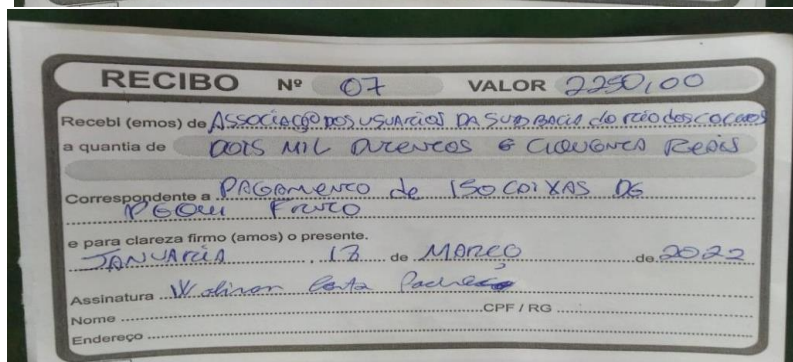 RECIBO Nº 07 VALOR 2250,00
Recebi (emos) de ASSOCIAÇÃO DOS USUARIOS DA SUB BACIA do rio dos cocHos
a quantia de DOIS MIL DUZENTOS E CIQUENTA REAIS
Correspondente a PAGAMENTO de 150 COIXAS DE
Fruto
e para clareza firmo (amos) o presente.
JANUARIA, 13 de MARÇO de 2022
Assinatura Costa Pacheco
Nome CPF / RG
Endereço